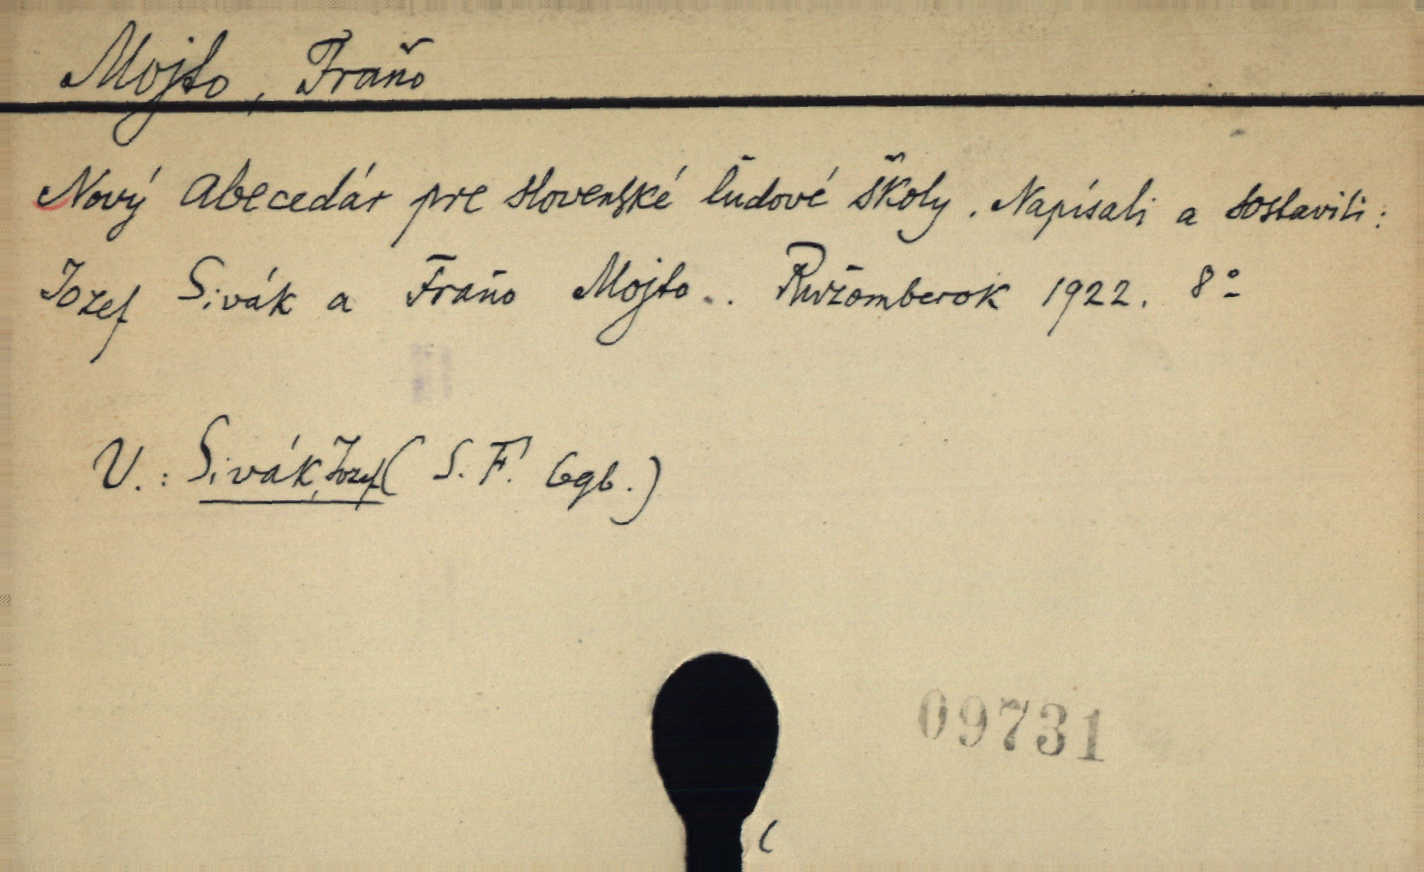 Mojto, Fraňo
Nový abecedár pre slovenské ľudové školy. Napísali a sostavili:
Jozef Sivák a Fraňo Mojto.. Ružomberok 1922. 8°
U.: Sivák, Jozef (S. F. Ggb.)
09731